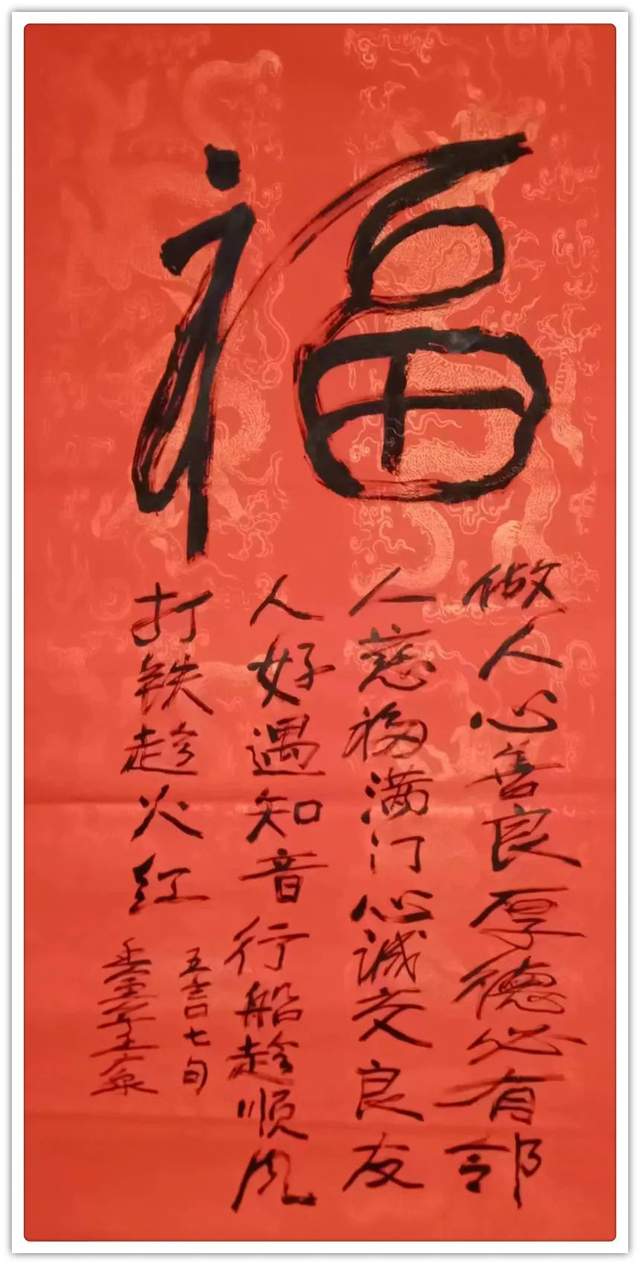 福
做人心善良厚德必有邻
人慈福满门心诚交良友
人好遇知音行船趁顺风
打铁趁火红